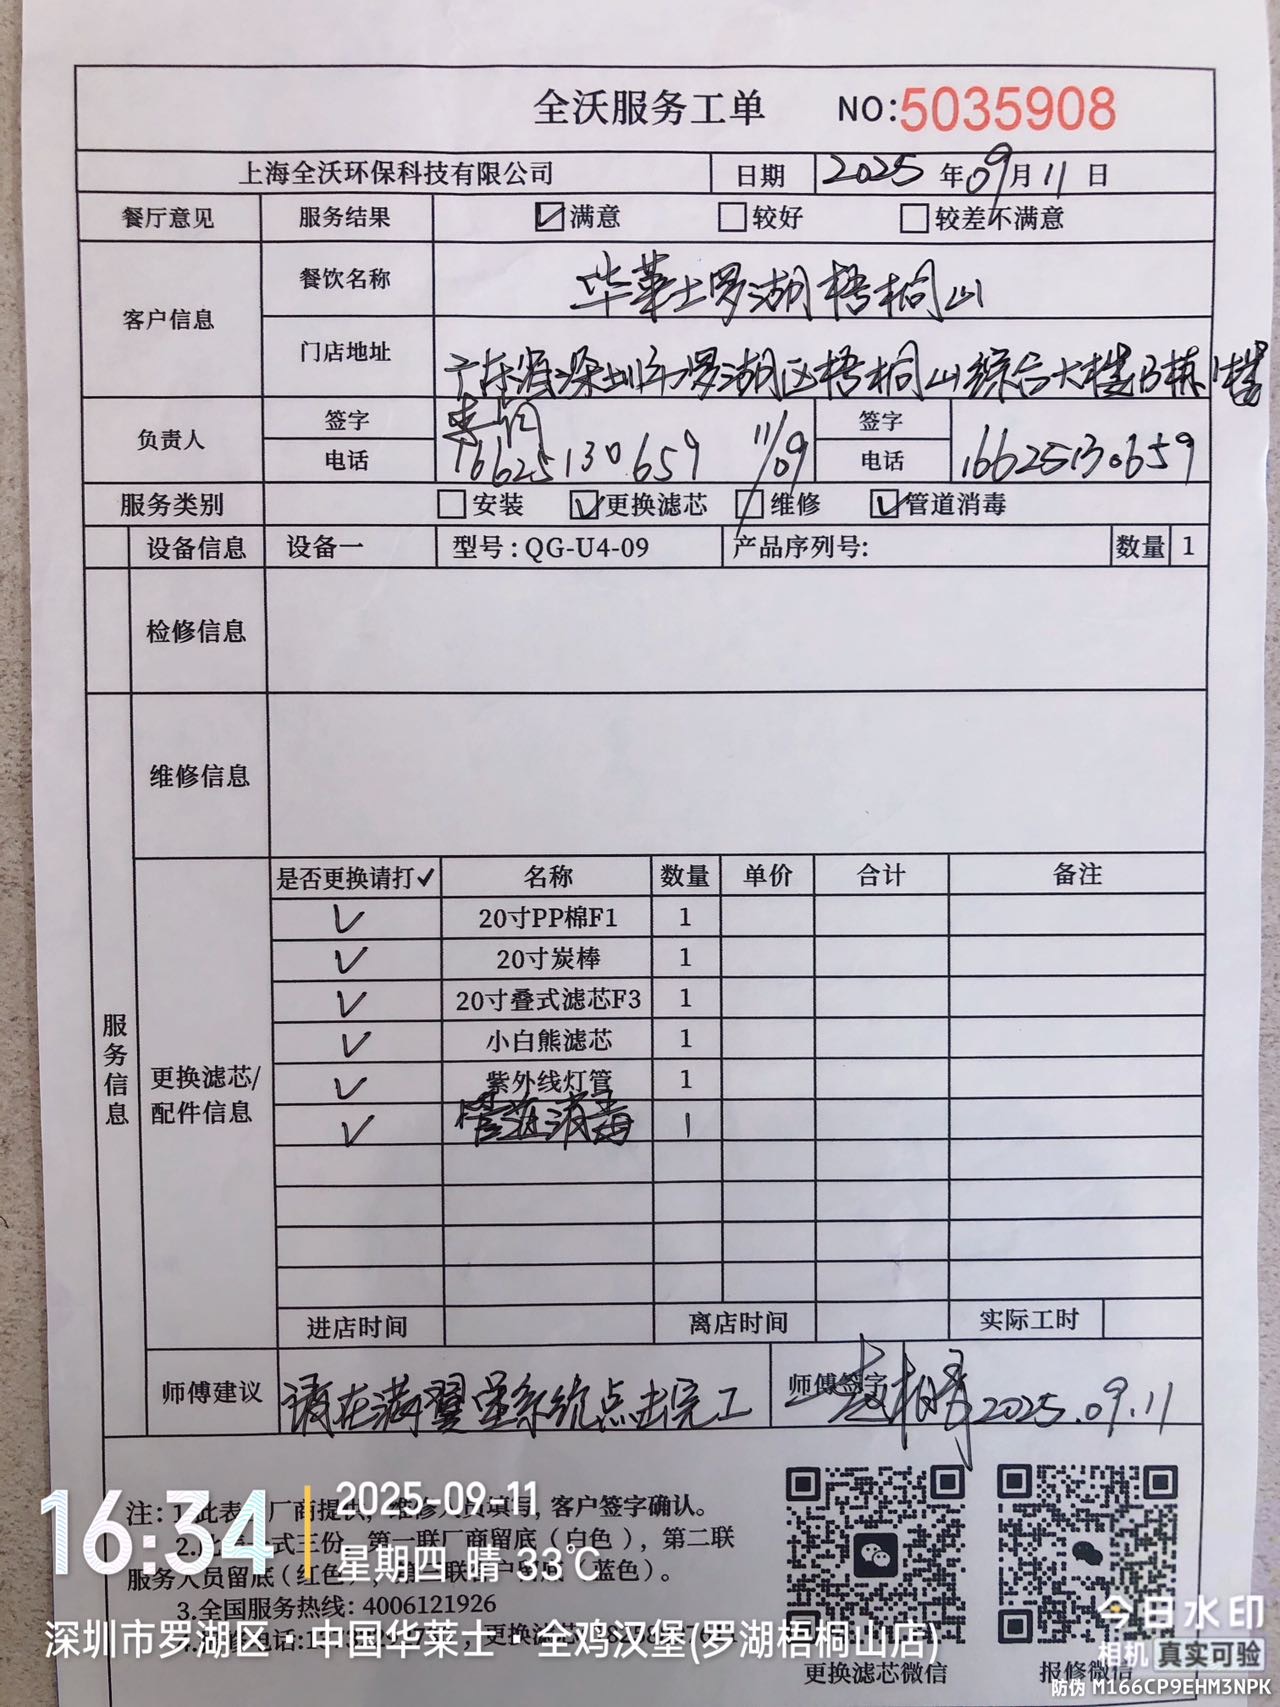 全沃服务工单 NO:5035908
上海全沃环保科技有限公司 日期 2025年09月11日
餐厅意见 服务结果 ☑满意 □较好 □较差不满意
客户信息 餐饮名称 华莱士罗湖梧桐山
门店地址 广东省深圳市罗湖区梧桐山综合大楼B栋1楼
负责人 签字 11/09 签字
电话 16625130659 电话 16625130659
服务类别 □安装 ☑更换滤芯 □维修 ☑管道消毒
设备信息 设备一 型号:QG-U4-09 产品序列号: 数量 1
检修信息
维修信息
服务信息
更换滤芯/
配件信息
是否更换请打✓ 名称 数量 单价 合计 备注
✓ 20寸PP棉F1 1
✓ 20寸炭棒 1
✓ 20寸叠式滤芯F3 1
✓ 小白熊滤芯 1
✓ 紫外线灯管 1
✓ 管道消毒 1
进店时间 离店时间 实际工时
师傅建议 请在满翼星系统点击完工 师傅签字 2025.09.11
注: 1.此表 厂商提供, 维修人员填写, 客户签字确认。
2. 一式三份 第一联厂商留底(白色), 第二联
服务人员留底(红色), 留底(蓝色)。
3.全国服务热线: 4006121926
更换滤芯微信 报修微信
16:34 2025-09-11
星期四 晴 33℃
深圳市罗湖区·中国华莱士·全鸡汉堡(罗湖梧桐山店)
今日水印
相机 真实可验
防伪 M166CP9EHM3NPK